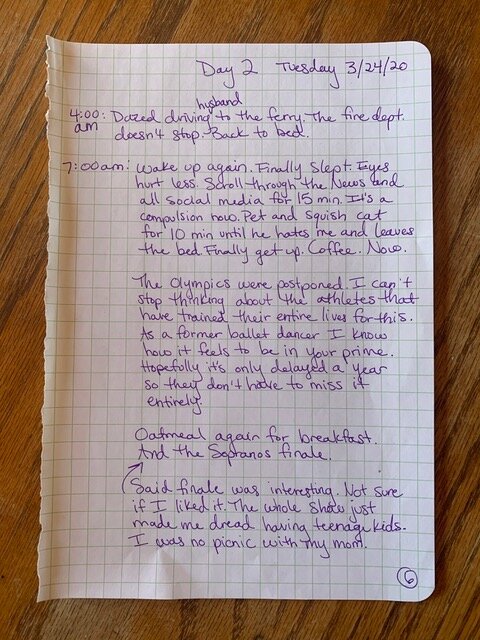 Day 2 Tuesday 3/24/20
husband
4:00 am: Dazed driving to the ferry. The fire dept.
doesn't stop. Back to bed.
7:00am: Wake up again. Finally slept. Eyes
hurt less. Scroll through the News and
all social media for 15 min. It's a
compulsion now. Pet and squish cat
for 10 min until he hates me and leaves
the bed. Finally get up. Coffee. Now.
The Olympics were postponed. I can't
stop thinking about the athletes that
have trained their entire lives for this.
As a former ballet dancer I know
how it feels to be in your prime.
Hopefully it's only delayed a year
so they don't have to miss it
entirely.
Oatmeal again for breakfast.
And the Sopranos finale.
Said finale was interesting. Not sure
if I liked it. The whole show just
made me dread having teenage kids.
I was no picnic with my mom.
6